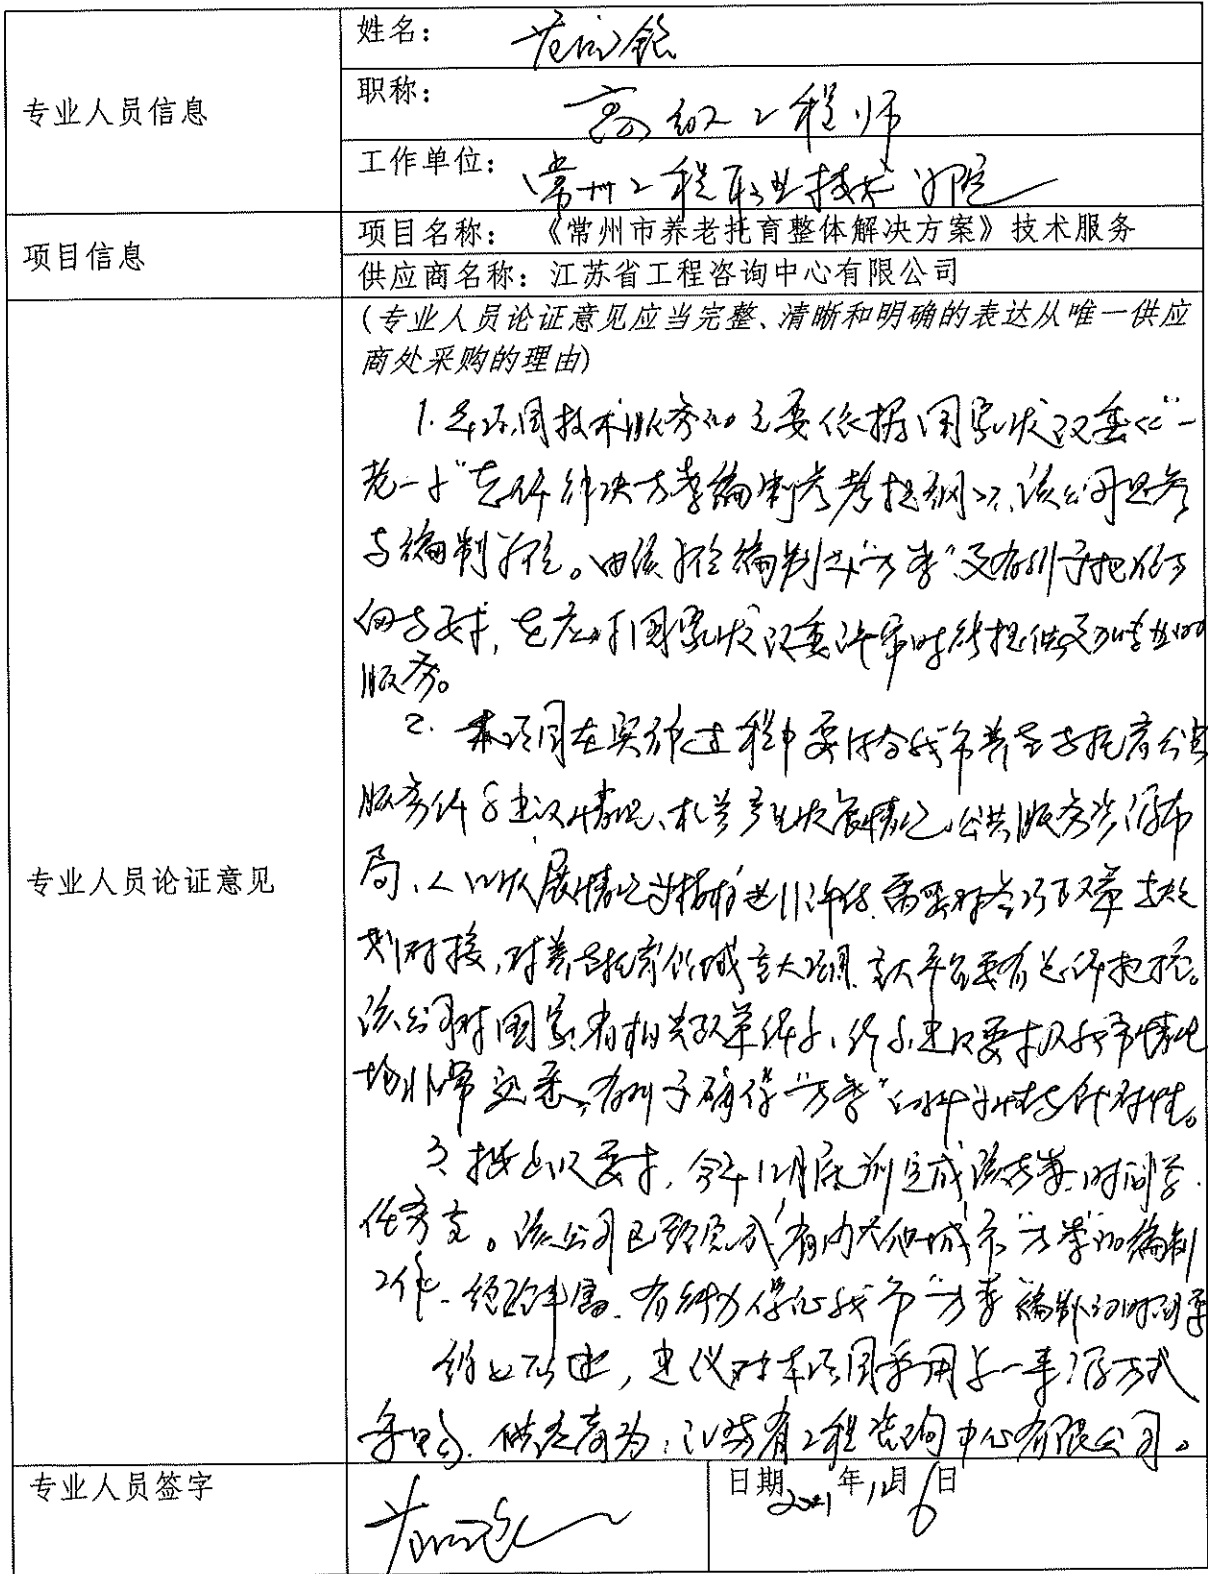 专业人员信息
姓名：
职称： 高级工程师
工作单位： 常州工程职业技术学院
项目信息
项目名称： 《常州市养老托育整体解决方案》技术服务
供应商名称：江苏省工程咨询中心有限公司
专业人员论证意见
(专业人员论证意见应当完整、清晰和明确的表达从唯一供应
商处采购的理由)
1. 本项目技术服务的主要依据国家发改委《“一
老一小”整体解决方案编制参考提纲》，该公司是参
与编制单位。由该单位编制“方案”更有利于把握方
向与要求，在应对国家发改委评审时能提供更好的
服务。
2. 本项目在实施过程中要结合我市养老与托育公共
服务体系建设情况、相关产业发展情况、公共服务设施布
局、人口发展情况等指标进行评估，需要对各项政策与规
划对接，对养老托育领域重大项目、重大平台要有总体把控。
该公司对国家、省相关政策体系、体系建设要求及我市情况
均非常熟悉，有利于确保“方案”的科学性与针对性。
3、按照要求，今年12月底前完成该方案，时间紧、
任务重。该公司已经完成省内其他城市“方案”的编制
工作，经验丰富，有能力保证我市“方案”编制的时间要求
综上所述，建议对本项目采用单一来源方式
采购，供应商为：江苏省工程咨询中心有限公司。
专业人员签字
日期2021年12月6日